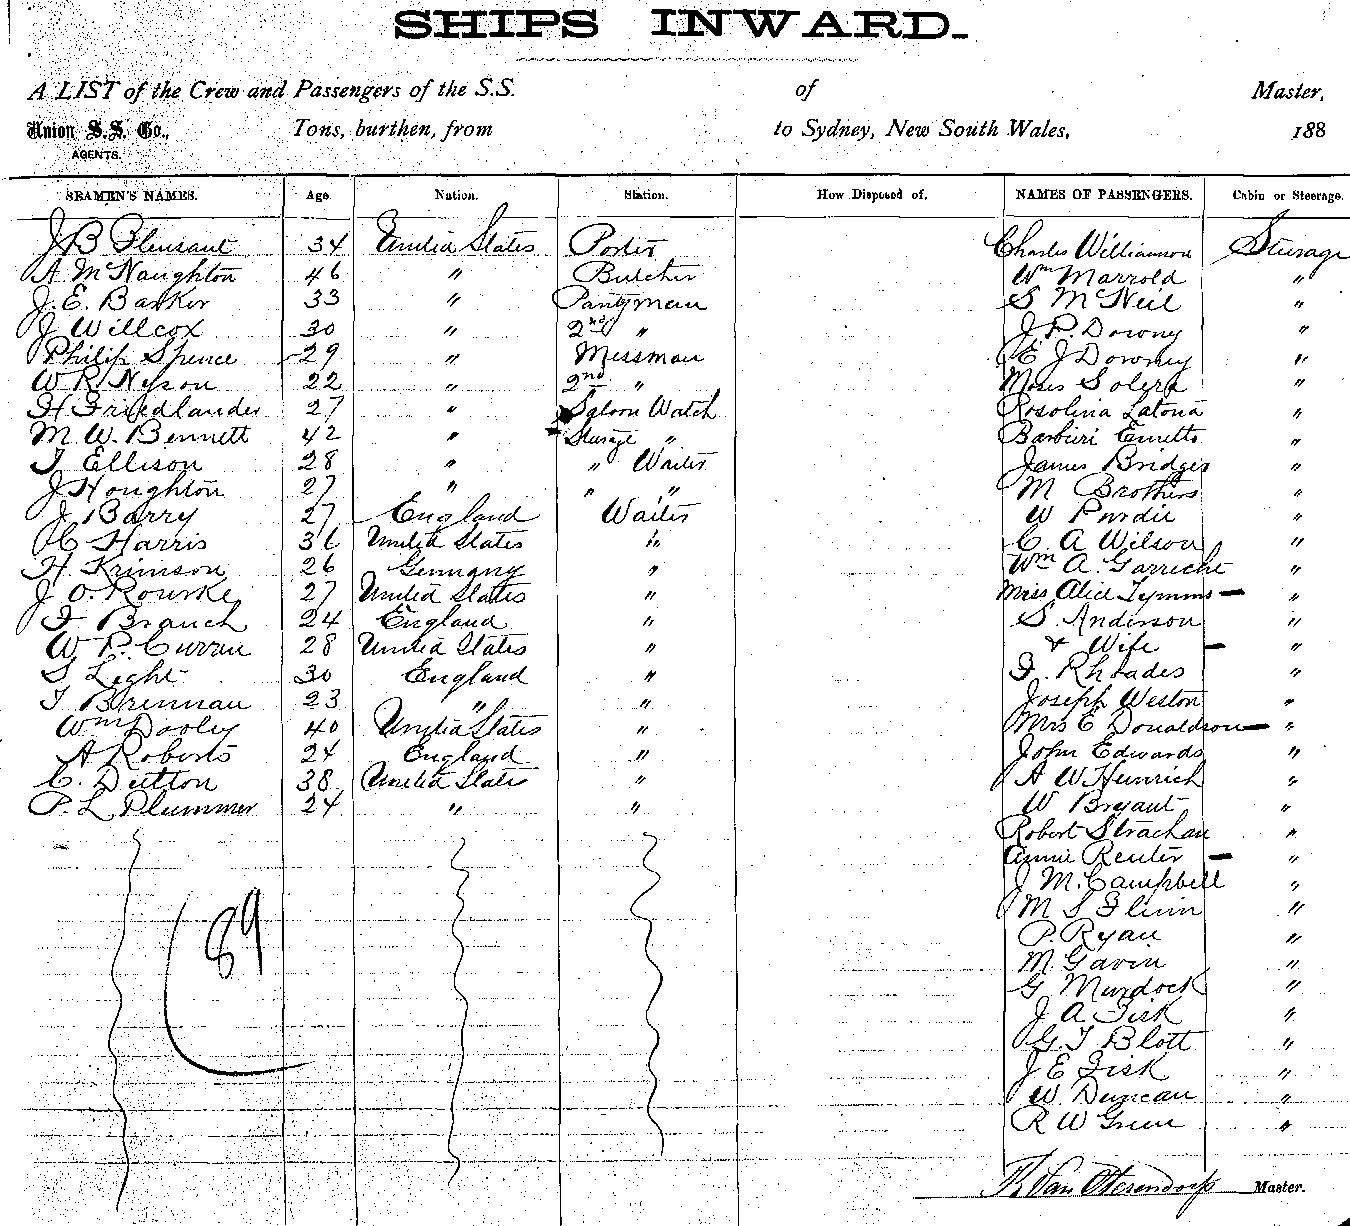 SHIPS INWARD.
A LIST of the Crew and Passengers of the S.S. of Master,
Union S.S. Co., Tons, burthen, from to Sydney, New South Wales, 188
AGENTS.
SEAMEN'S NAMES. Age Nation. Station. How Disposed of. NAMES OF PASSENGERS. Cabin or Steerage.
J B Pleasant 34 United States Porter Charles Williamson Steerage
A McNaughton 46 " Butcher Wm Marrold "
J. E. Barker 33 " Pantryman S McNeil "
J Willcox 30 " 2nd " J. P. Downy "
Philip Spence 29 " Messman E J Downey "
W R Nyson 22 " 2nd " Moses Solera "
H Friedlander 27 " Saloon Watch Rosolina Latona "
M. W. Bennett 42 " Sterage " Barbieri "
T Ellison 28 " " Waiter James Bridges "
J Houghton 27 " " " M Brothers "
J Barry 27 England Waiter W Purdie "
C Harris 36 United States " C A Wilson "
H. Krimson 26 Germany " Wm A. Garricht "
J O Rourke 27 United States " Miss Alice Tymms — "
F Branch 24 England " S. Anderson "
W P. Curran 28 United States " & Wife — "
S Light 30 England " F. Rhoades "
T Brennan 23 " " Joseph Weston "
Wm Dooley 40 United States " Mrs E Donaldson — "
A Roberts 24 England " John Edwards "
C. Dutton 38 United States " A W Heinrich "
P. L Plummer 24 " " W Bryant "
Robert Strachan "
Annie Reuter — "
J M. Campbell "
M S Flinn "
P. Ryan "
M Gavin "
G Murdock "
J A Fisk "
G. T Blott "
J E Fisk "
W Duncan "
R W Green "
89
Master.